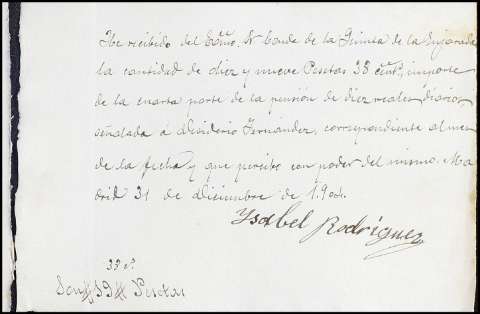 He recibido del Exmo. Sr Conde de la Quinta de la Enjarada
la cantidad de diez y nueve Pesetas 38 cénts, importe
de la cuarta parte de la pensión de diez reales diarios
señalada á Desiderio Fernández, correspondiente al mes
de la fecha y que percibo con poder del mismo. Ma
drid 31 de diciembre de 190
Ysabel Rodríguez
Son 19 Pesetas